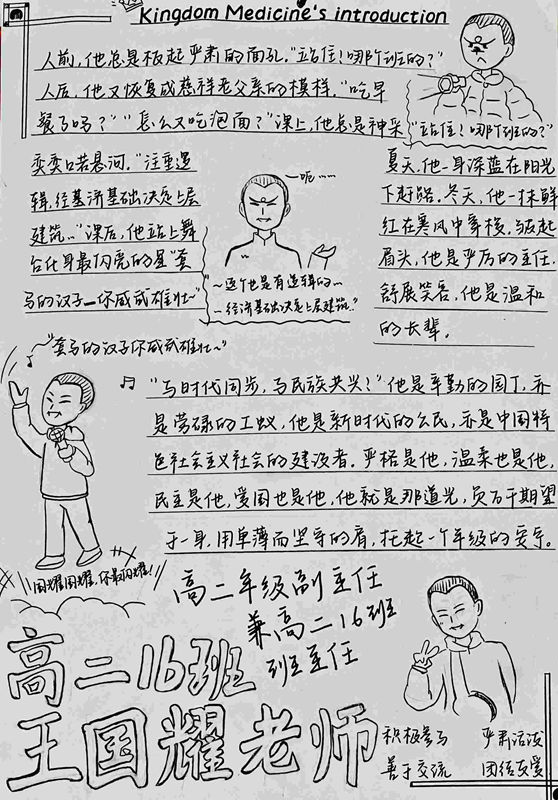 Kingdom Medicine's introduction
人前，他总是板起严肃的面孔。“站住！哪个班的？”
人后，他又恢复成慈祥老父亲的模样。“吃早
餐了吗？”“怎么又吃泡面？”课上，他总是神采
奕奕口若悬河。“注重逻
辑，经济基础决定上层
建筑…”课后，他站上舞
台化身最闪亮的星“套
马的汉子—你威武雄壮~”
“站住！哪个班的？”
~呃……
“~这个也是有逻辑的~
—经济基础决定上层建筑。”
夏天，他一身深蓝在阳光
下赶路。冬天，他一抹鲜
红在寒风中穿梭。皱起
眉头，他是严厉的主任。
舒展笑容，他是温和
的长辈。
“套马的汉子你威武雄壮~”
“与时代同步，与民族共兴！”他是辛勤的园丁，亦
是劳碌的工蚁，他是新时代的公民，亦是中国特
色社会主义社会的建设者。严格是他，温柔也是他，
民主是他，爱国也是他，他就是那道光，负万千期望
于一身，用单薄而坚守的肩，托起一个年级的
国耀国耀，你最闪耀！
高二年级副主任
兼高二16班
班主任
高二16班
王国耀老师
积极参与 严肃活泼
善于交流 团结友爱